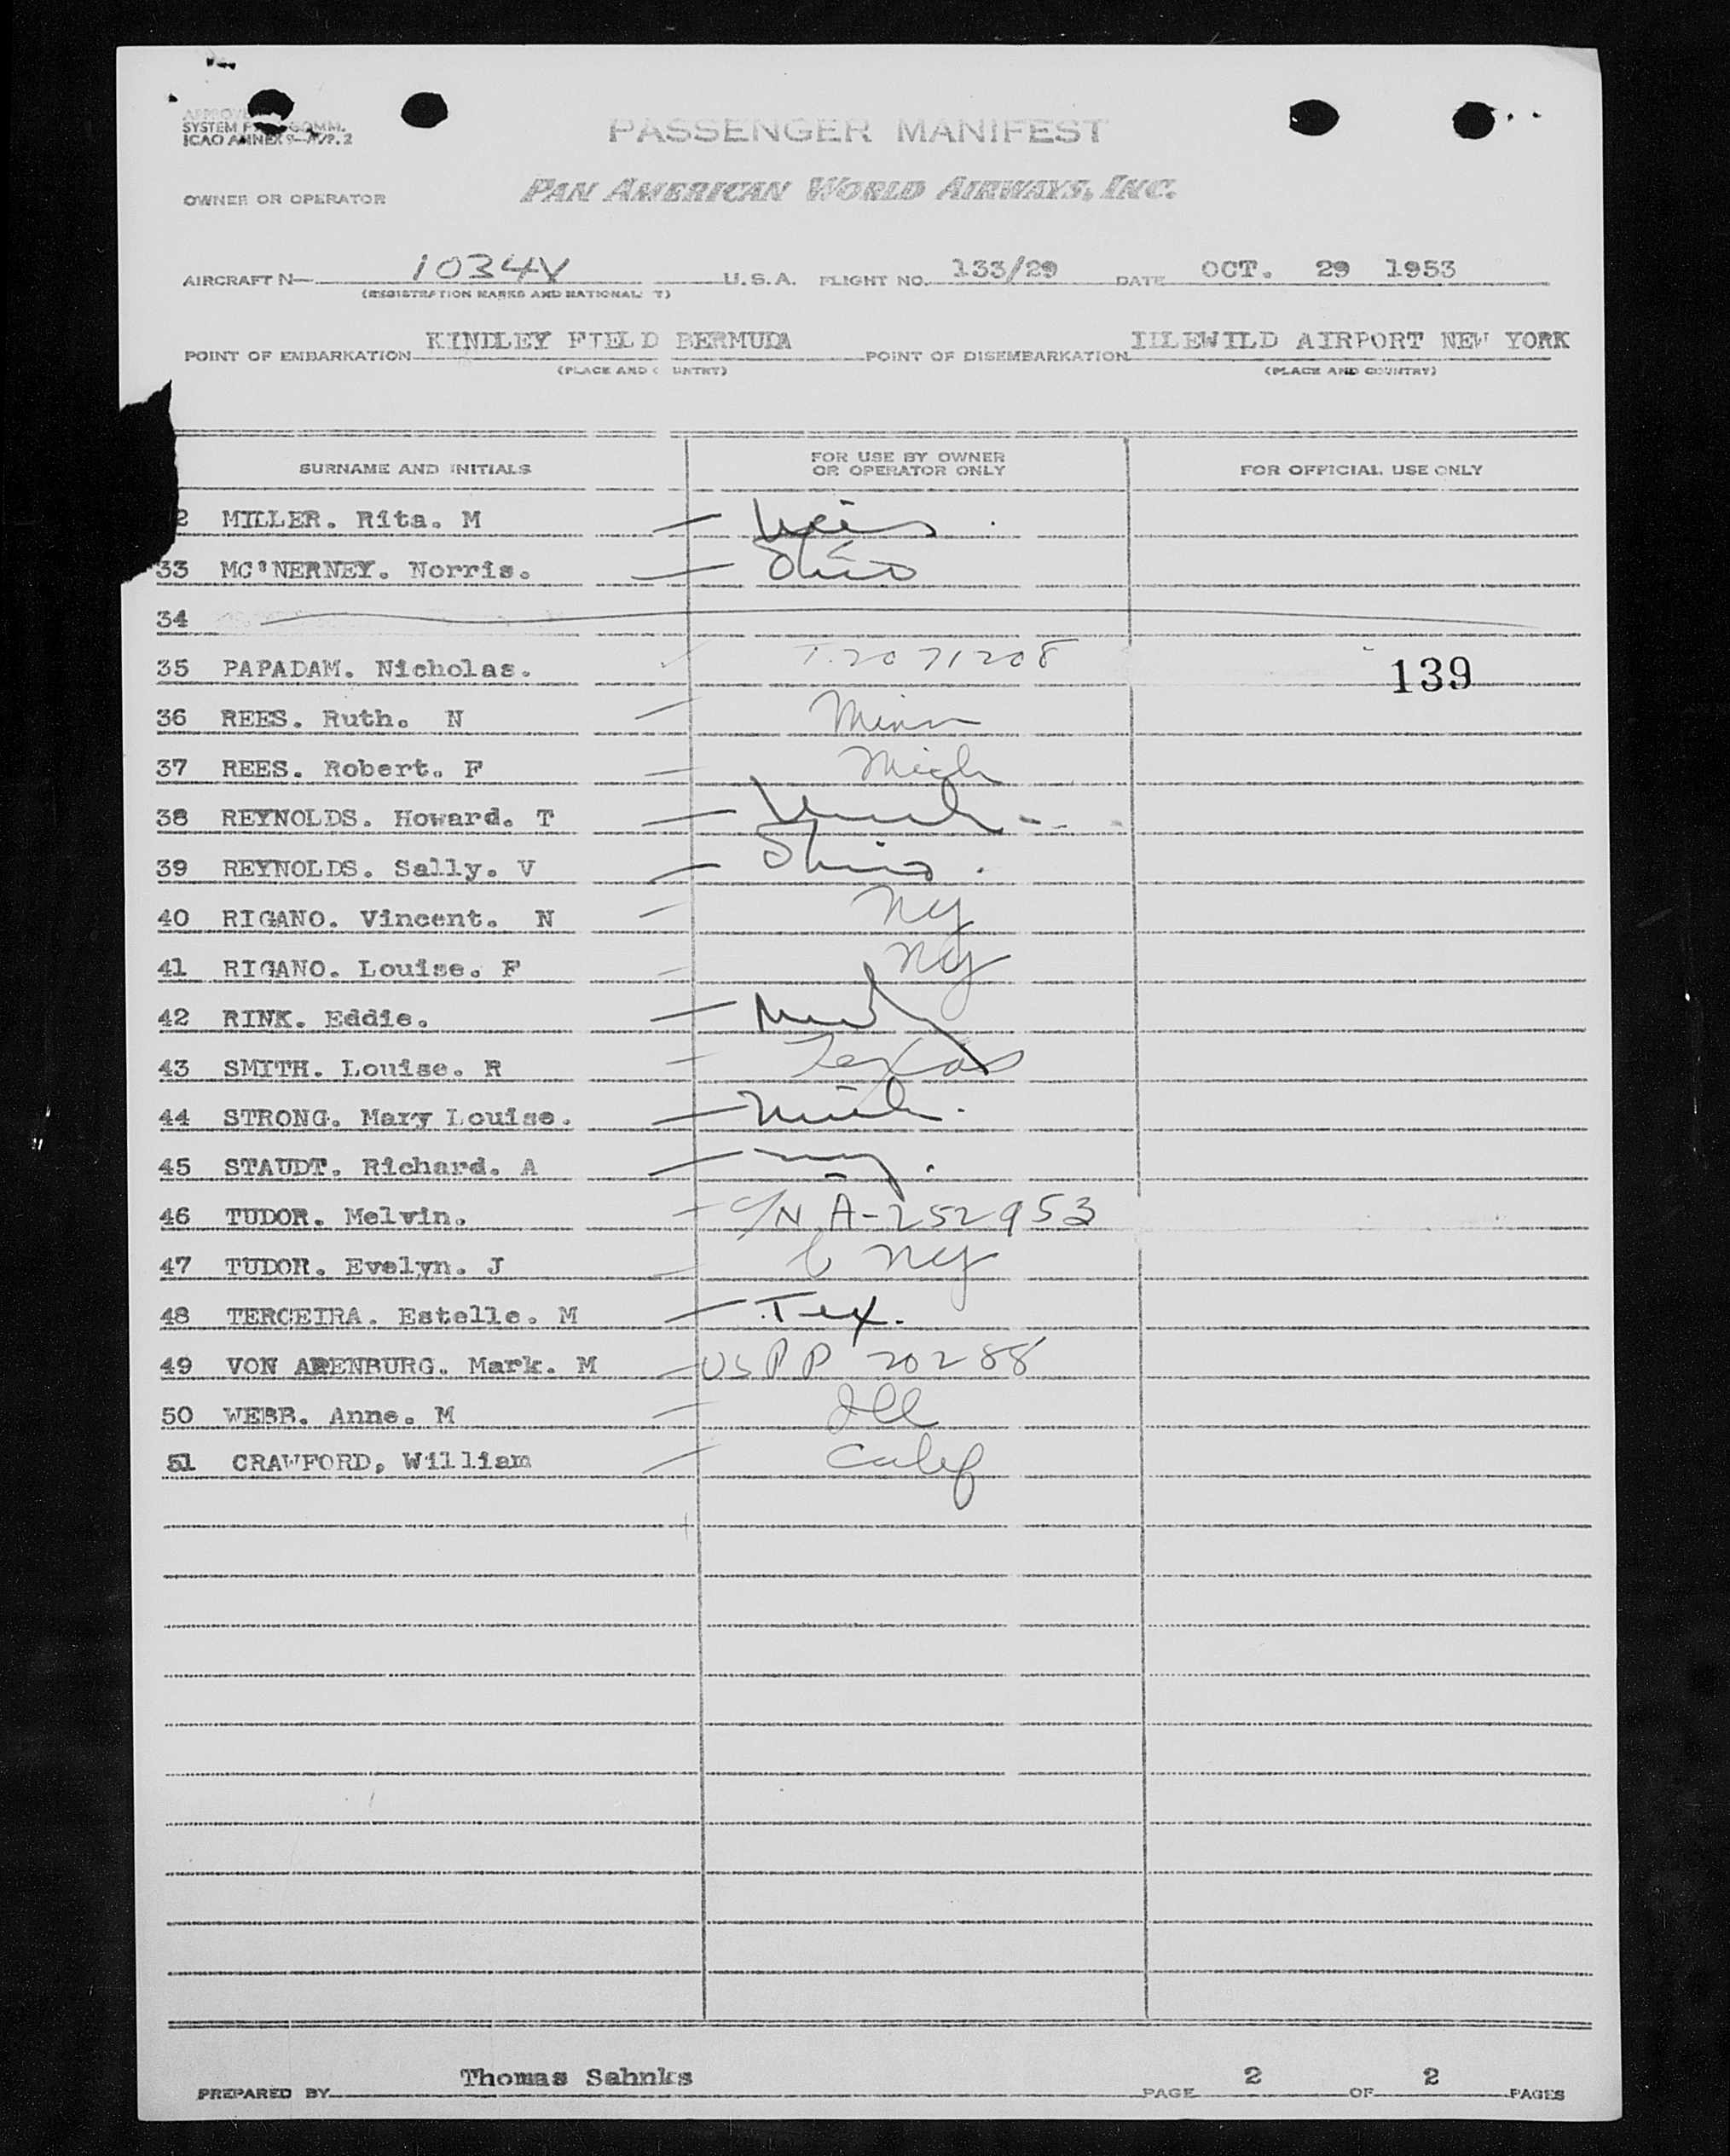 SYSTEM
ICAO ANNEX 9
PASSENGER MANIFEST
OWNER OR OPERATOR PAN AMERICAN WORLD AIRWAYS, INC.
AIRCRAFT N— 1034V U.S.A. FLIGHT NO. 133/29 DATE OCT. 29 1953
(REGISTRATION MARKS AND NATIONAL T)
POINT OF EMBARKATION KINDLEY FIELD BERMUDA POINT OF DISEMBARKATION IDLEWILD AIRPORT NEW YORK
(PLACE AND C UNTRY) (PLACE AND COUNTRY)
SURNAME AND INITIALS FOR USE BY OWNER OR OPERATOR ONLY FOR OFFICIAL USE ONLY
2 MILLER. Rita. M
33 MC'NERNEY. Norris. — Ohio
34
35 PAPADAM. Nicholas. T.2071208 139
36 REES. Ruth. N — Minn
37 REES. Robert. F — Mich
38 REYNOLDS. Howard. T —
39 REYNOLDS. Sally. V — Ohio.
40 RIGANO. Vincent. N — NY
41 RIGANO. Louise. F — NY
42 RINK. Eddie. —
43 SMITH. Louise. R — Texas
44 STRONG. Mary Louise. — Mich.
45 STAUDT. Richard. A — NY.
46 TUDOR. Melvin. — C/N A-252953
47 TUDOR. Evelyn. J — NY
48 TERCEIRA. Estelle. M — Tex.
49 VON ARENBURG. Mark. M — US PP 20288
50 WEBB. Anne. M — Ill
51 CRAWFORD, William — Calif
PREPARED BY Thomas Sahnks PAGE 2 OF 2 PAGES